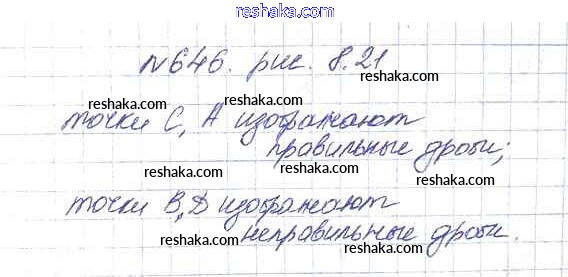 reshaka.com
№646. рис. 8.21
reshaka.com
reshaka.com
точки C, A изображают
reshaka.com
правильные дроби;
reshaka.com
reshaka.com
reshaka.com
точки B, D изображают
reshaka.com
неправильные дроби.
reshaka.com
reshaka.com